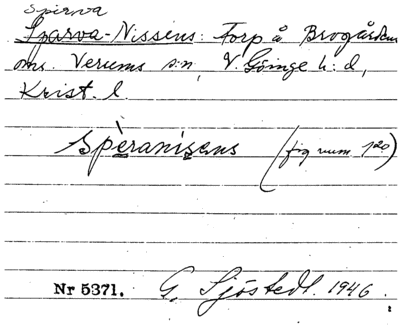 Spirva
Sparva-Nissens: Torp å Brogårdens
oms. Verums sn, V. Göinge h:d,
Krist. l.
spèranisens (fig num. 120)
Nr 5371. G. Sjöstedt. 1946.